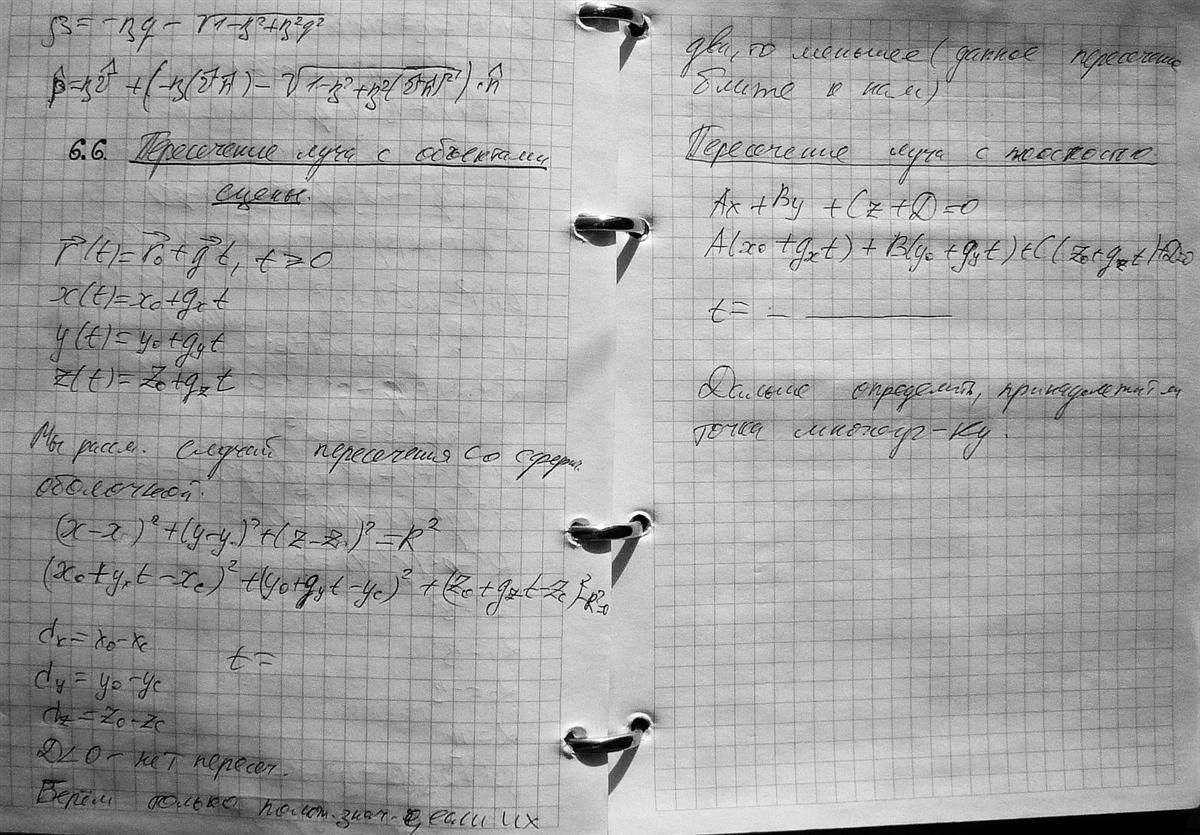 β = -ηq - √1-η²+η²q²
p̂ = ηv̂ + (-η(v̂n̂) - √1-η²+η²(v̂n̂)²)·n̂
6.6. Пересечение луча с объектами
сцены.
r⃗(t)=r⃗₀+g⃗t, t≥0
x(t)=x₀+gₓt
y(t)=y₀+g_yt
z(t)=z₀+g_zt
Мы рассм. случай пересечения со сферич.
оболочкой.
(x-x.)²+(y-y.)²+(z-z.)²=R²
(x₀+gₓt-x_c)²+(y₀+g_yt-y_c)²+(z₀+g_zt-z_c)²-R²=0
dₓ=x₀-x_c
t=
d_y=y₀-y_c
d_z=z₀-z_c
D<0 - нет пересеч.
Берём только полож. знач. если их
два, то меньшее (данное пересечение
ближе к нам)
Пересечение луча с плоскостью.
Ax+By+Cz+D=0
A(x₀+gₓt)+B(y₀+g_yt)+C(z₀+g_zt)+D=0
t= -
Дальше определить, принадлежит ли
точка многоуг-ку.